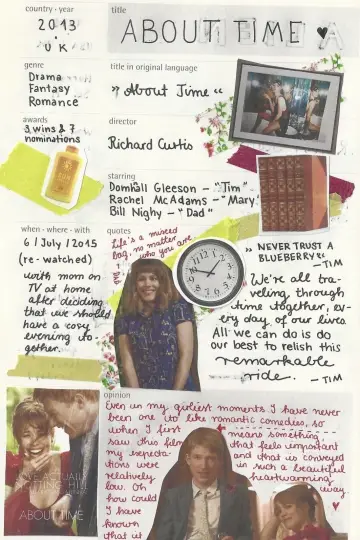 country · year
2013
·
UK
title
ABOUT TIME ♥
genre
Drama
Fantasy
Romance
title in original language
» About Time «
awards
3 wins & 7
nominations
director
Richard Curtis
starring
Domhall Gleeson - "Tim"
Rachel McAdams - "Mary"
Bill Nighy - "Dad"
when · where · with
6 / July / 2015
(re-watched)
with mom on
TV at home
after deciding
that we should
have a cosy
evening to-
gether.
quotes
Life's a mixed
bag, no matter
who you are
» NEVER TRUST A
BLUEBERRY «
- TIM
We're all tra-
veling through
time together, ev-
ery day of our lives.
All we can do is do
our best to relish this
remarkable
ride. - TIM
opinion
Even in my girliest moments I have never
been one to like romantic comedies, so
when I first
saw this film
my expecta-
tions were
relatively
low. Oh
how could
I have
known
that it
means something,
that feels important
and that is conveyed
in such a beautiful
heartwarming
way.
♥
LOVE ACTUALLY
NOTTING HILL
ABOUT TIME